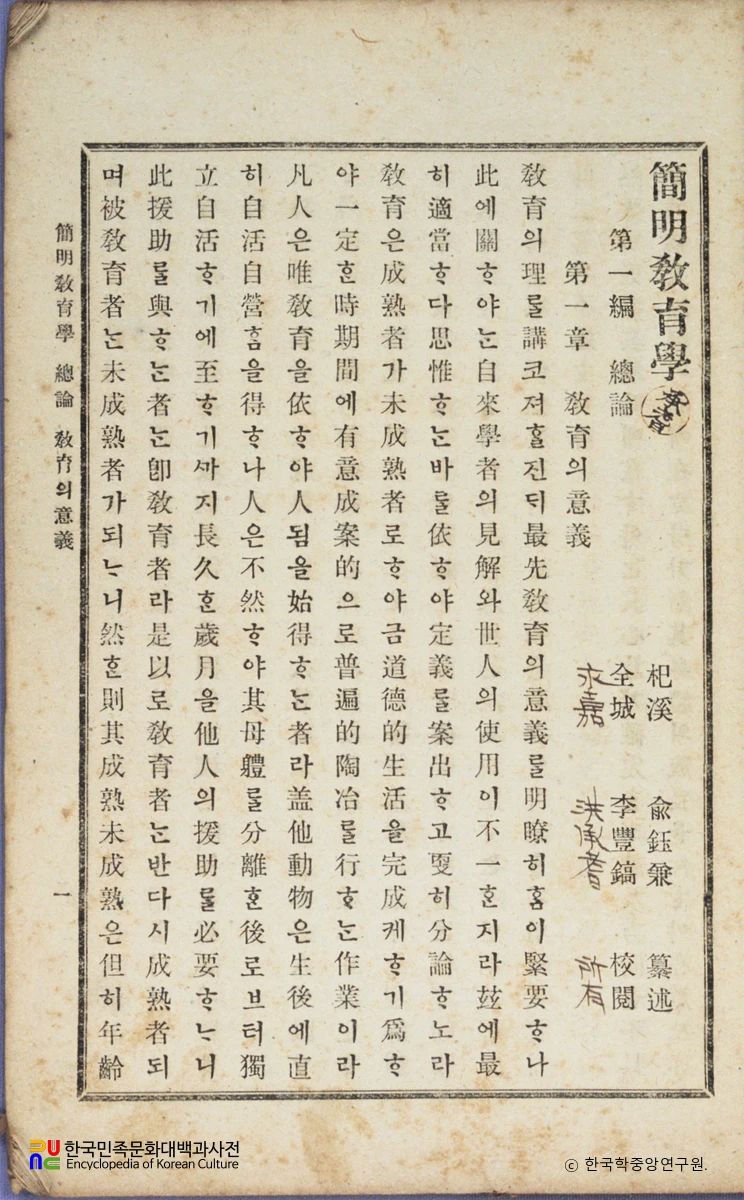 簡明敎育學
杞溪 兪鈺兼 纂述
第一編 總論
全城 李豐鎬 校閱
第一章 敎育의意義
永嘉 洪承耆 所有
敎育의理ᄅᆞᆯ講코져ᄒᆞᆯ진ᄃᆡ最先敎育의意義ᄅᆞᆯ明瞭히ᄒᆞᆷ이緊要ᄒᆞ나
此에關ᄒᆞ야ᄂᆞᆫ自來學者의見解와世人의使用이不一ᄒᆞᆫ지라玆에最
히適當ᄒᆞ다思惟ᄒᆞᄂᆞᆫ바ᄅᆞᆯ依ᄒᆞ야定義ᄅᆞᆯ案出ᄒᆞ고更히分論ᄒᆞ노라
敎育은成熟者가未成熟者로ᄒᆞ야금道德的生活을完成케ᄒᆞ기爲ᄒᆞ
야一定ᄒᆞᆫ時期間에有意成案的으로普遍的陶冶ᄅᆞᆯ行ᄒᆞᄂᆞᆫ作業이라
凡人은唯敎育을依ᄒᆞ야人됨을始得ᄒᆞᄂᆞᆫ者라盖他動物은生後에直
히自活自營ᄒᆞᆷ을得ᄒᆞ나人은不然ᄒᆞ야其母軆ᄅᆞᆯ分離ᄒᆞᆫ後로브터獨
立自活ᄒᆞ기에至ᄒᆞ기ᄭᅡ지長久ᄒᆞᆫ歲月을他人의援助ᄅᆞᆯ必要ᄒᆞᄂᆞ니
此援助ᄅᆞᆯ與ᄒᆞᄂᆞᆫ者ᄂᆞᆫ卽敎育者라是以로敎育者ᄂᆞᆫ반다시成熟者되
며被敎育者ᄂᆞᆫ未成熟者가되ᄂᆞ니然ᄒᆞᆫ則其成熟未成熟은但히年齡
簡明敎育學 總論 敎育의意義
一
한국민족문화대백과사전
Encyclopedia of Korean Culture
© 한국학중앙연구원.